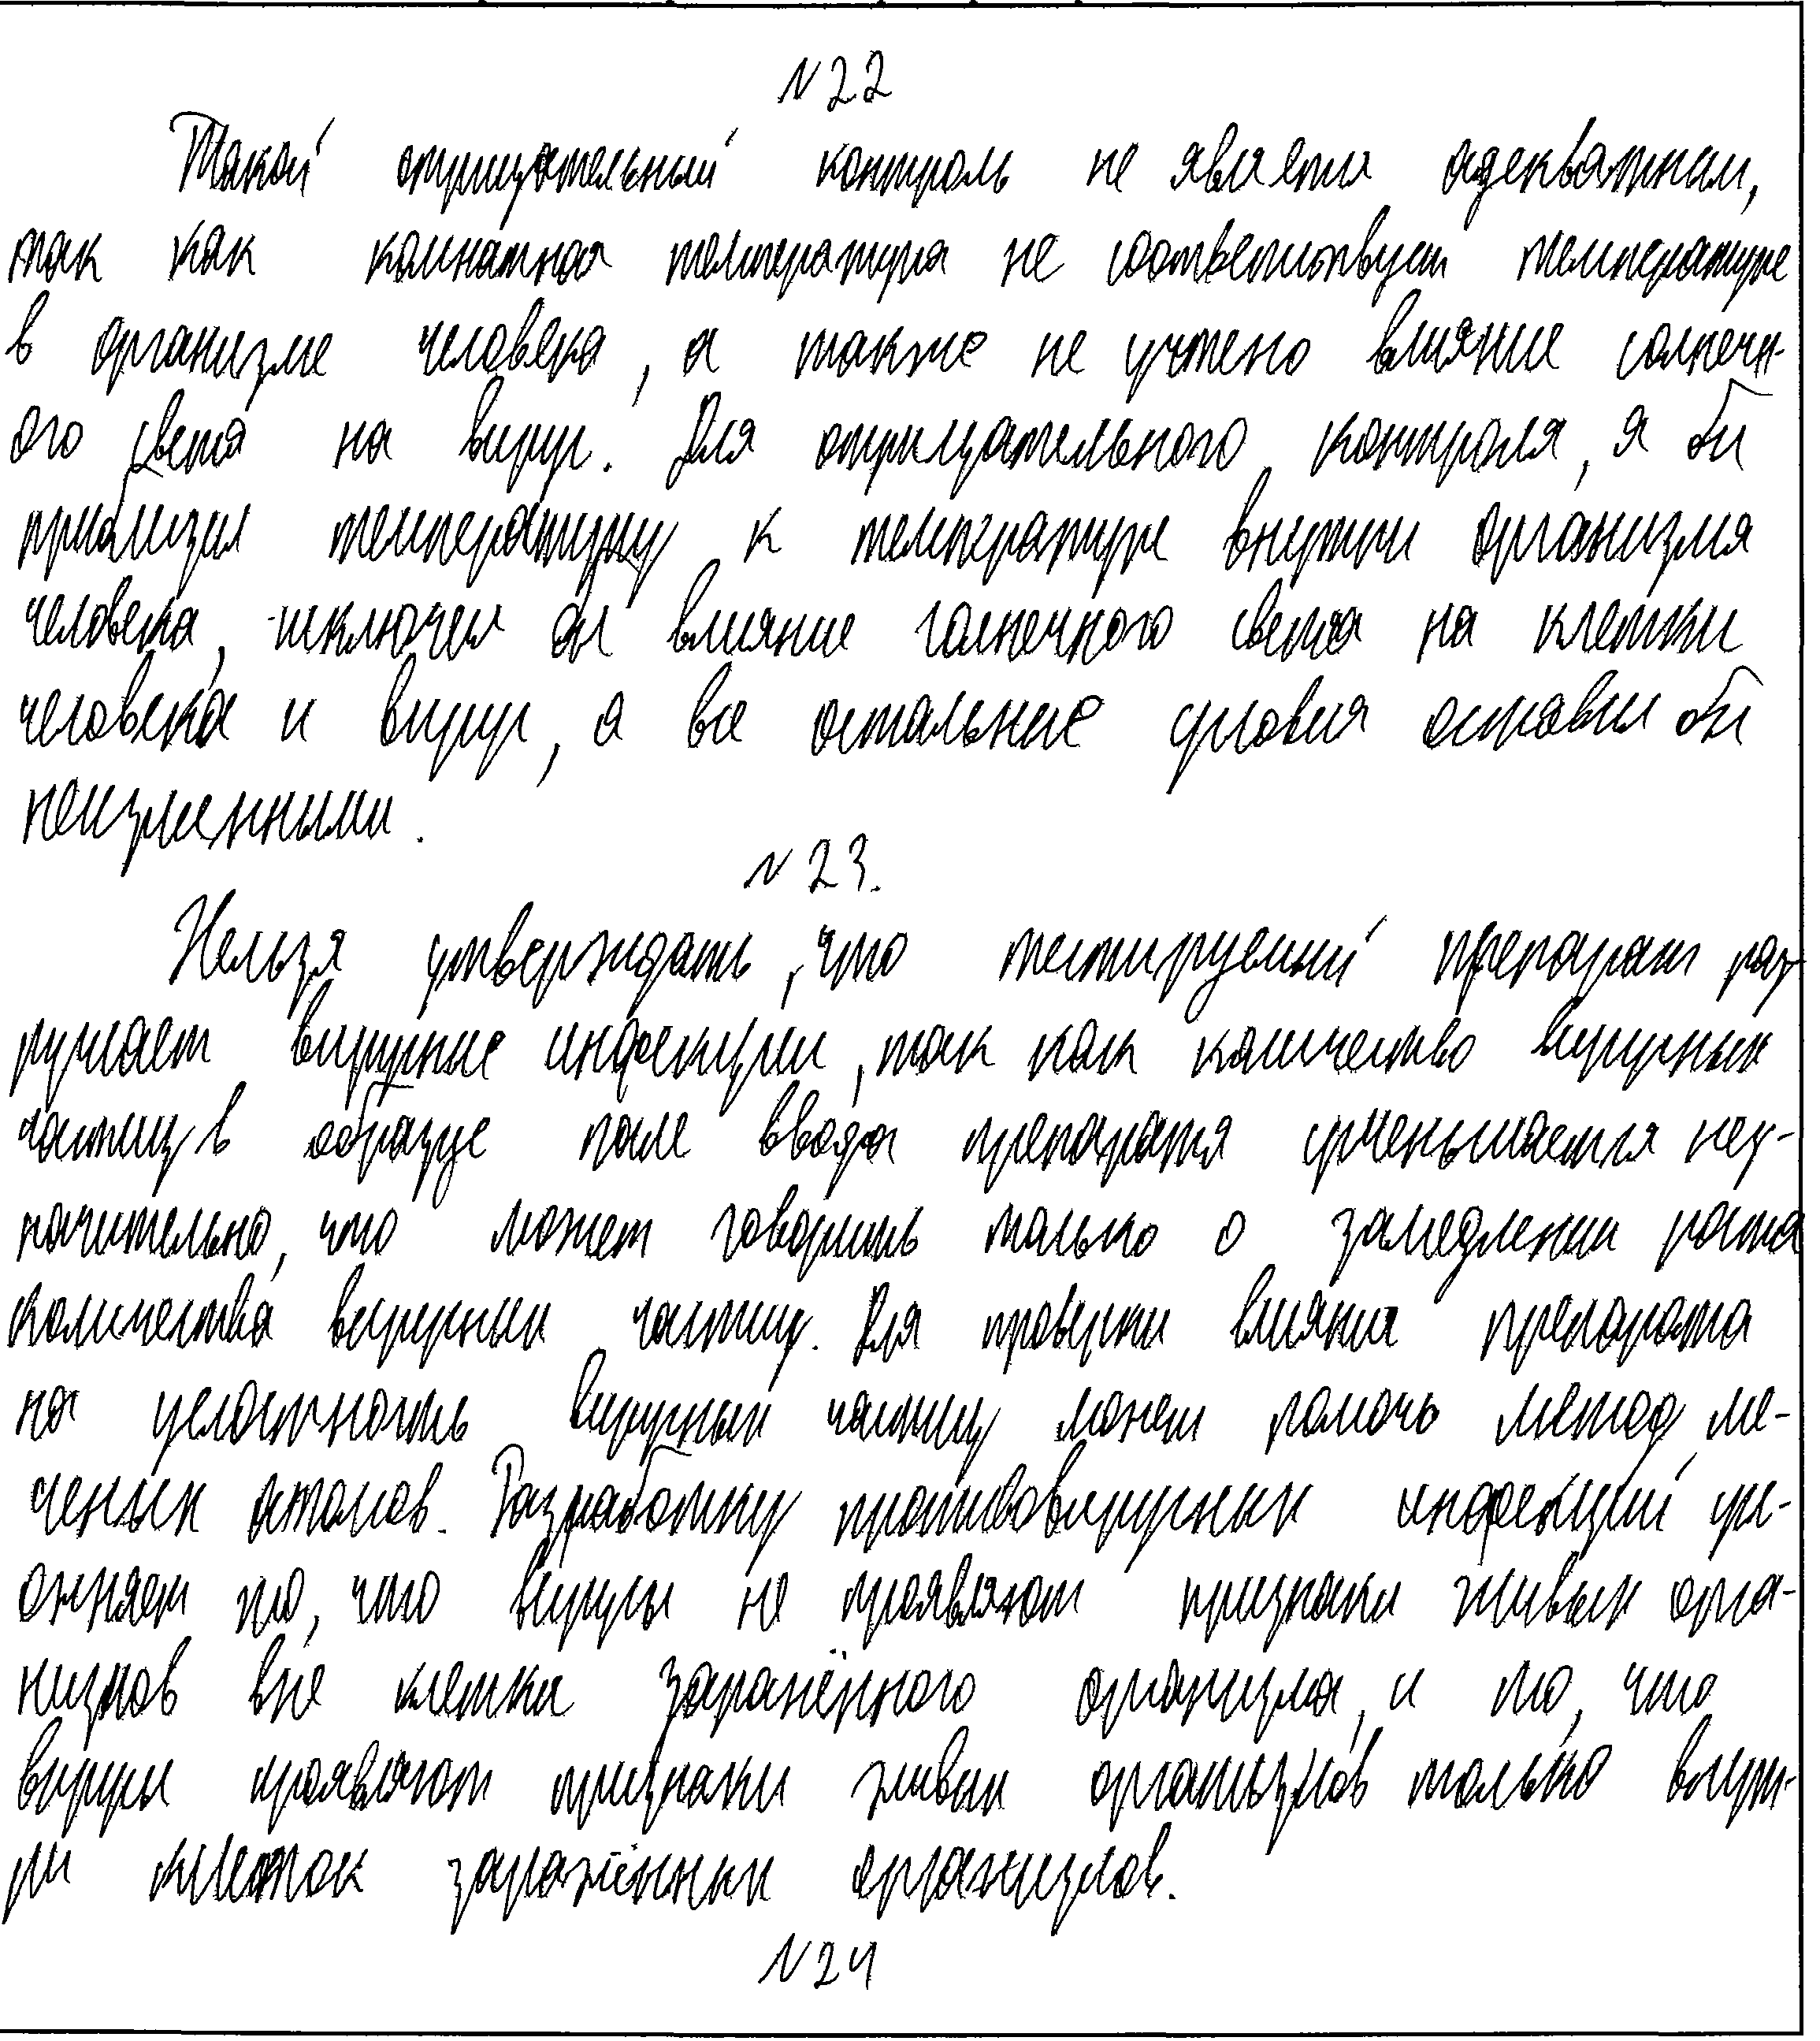 N22
Такой отрицательный контроль не является адекватным,
так как комнатная температура не соответствует температуре
в организме человека, а также не учтено влияние солнечн-
ого света на вирус. Для отрицательного контроля, я бы
приблизил температуру к температуре внутри организма
человека, исключил бы влияние солнечного света на клетки
человека и вирус, а все остальные условия оставил бы
неизменными.
N23.
Нельзя утверждать, что тестируемый препарат раз-
рушает вирусные инфекции, так как количество вирусных
частиц в образце после ввода препарата уменьшается нез-
начительно, что может говорить только о замедлении роста
количества вирусных частиц. Для проверки влияния препарата
на целостность вирусных частиц может помочь метод ме-
ченых атомов. Разработку противовирусных инфекций усл-
ожняет то, что вирусы не проявляют признаки живых орга-
низмов вне клетки заражённого организма, и то, что
вирусы проявляют признаки живых организмов только внут-
ри клеток заражённых организмов.
N24